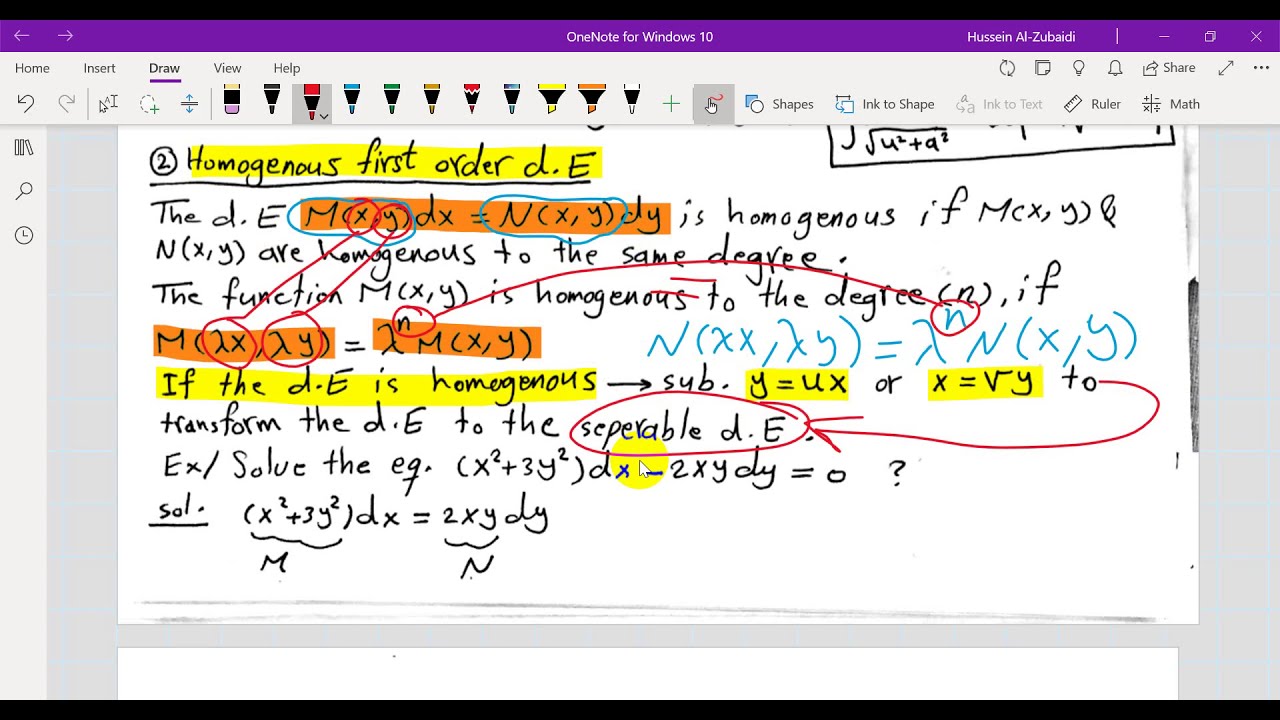 OneNote for Windows 10
Hussein Al-Zubaidi
Home Insert Draw View Help
Share
Shapes Ink to Shape Ink to Text Ruler Math
√u²+a²
② Homogenous first order d.E
The d.E M(x,y)dx = N(x,y)dy is homogenous if M(x,y) &
N(x,y) are homogenous to the same degree.
The function M(x,y) is homogenous to the degree (n), if
M(λx,λy) = λⁿ M(x,y) N(λx,λy) = λⁿ N(x,y)
If the d.E is homogenous → sub. y=ux or x=vy to
transform the d.E to the seperable d.E.
Ex/ Solve the eq. (x²+3y²)dx - 2xy dy = 0 ?
sol. (x²+3y²)dx = 2xy dy
M N